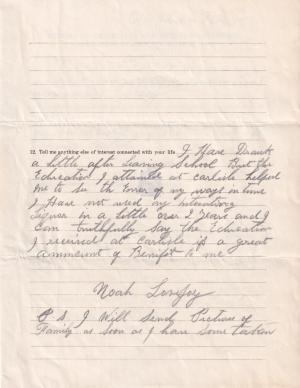 12. Tell me anything else of interest connected with your life I Have Drank
a little after Leaving School But the
Education I attained at Carlisle helped
me to see the Error of my ways in time
I Have not used any intoxicating
liquor in a little over 2 years and I
can truthfully say the Education
I received at Carlisle is a great
ammount of Benifit to me
Noah Lovejoy
P S. I Will Send Picture of
Family as soon as I have some taken